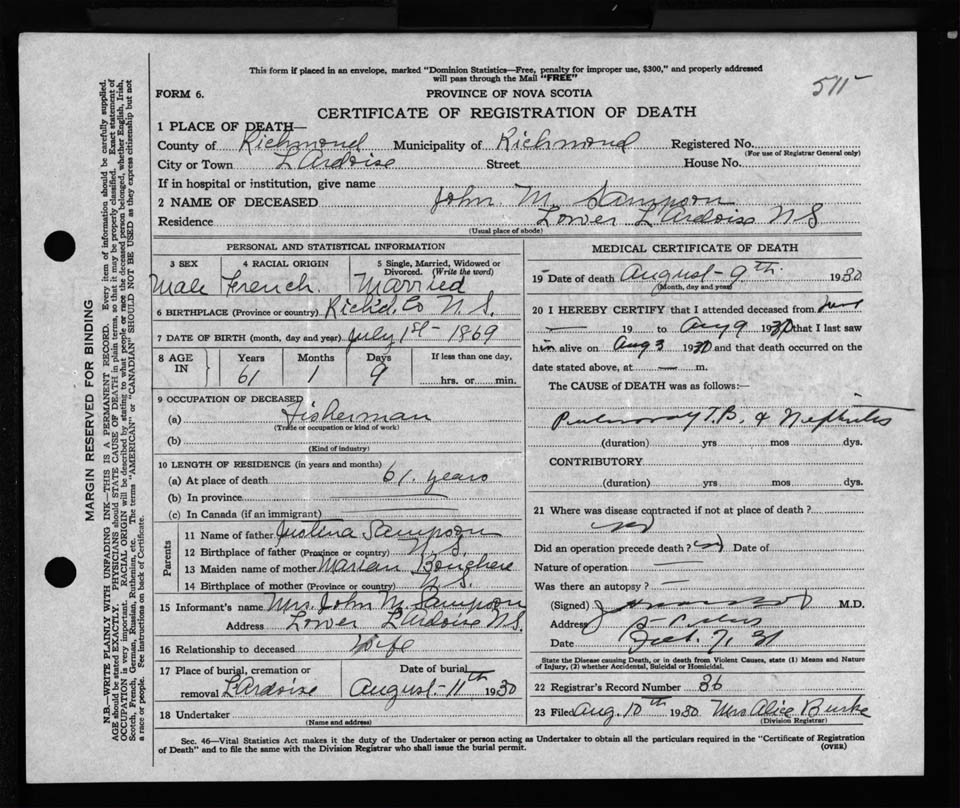 This form if placed in an envelope, marked "Dominion Statistics—Free, penalty for improper use, $300," and properly addressed
will pass through the Mail "FREE"
511
FORM 6. PROVINCE OF NOVA SCOTIA
CERTIFICATE OF REGISTRATION OF DEATH
1 PLACE OF DEATH—
County of Richmond Municipality of Richmond Registered No.
(For use of Registrar General only)
City or Town L'Ardoise Street House No.
If in hospital or institution, give name
2 NAME OF DECEASED John M. Sampson
Residence Lower L'Ardoise N S
(Usual place of abode)
PERSONAL AND STATISTICAL INFORMATION
3 SEX 4 RACIAL ORIGIN 5 Single, Married, Widowed or Divorced. (Write the word)
Male French. Married
6 BIRTHPLACE (Province or country) Richd. Co N. S.
7 DATE OF BIRTH (month, day and year) July 1st - 1869
8 AGE IN Years Months Days If less than one day,
61 1 9 hrs. or min.
9 OCCUPATION OF DECEASED
(a) Fisherman
(Trade or occupation or kind of work)
(b)
(Kind of industry)
10 LENGTH OF RESIDENCE (in years and months)
(a) At place of death 61. years
(b) In province
(c) In Canada (if an immigrant)
Parents
11 Name of father Sampson
12 Birthplace of father (Province or country) N. S.
13 Maiden name of mother Marian
14 Birthplace of mother (Province or country) N. S.
15 Informant's name Mrs. John M. Sampson
Address Lower L'Ardoise N.S.
16 Relationship to deceased Wife
17 Place of burial, cremation or removal L'Ardoise Date of burial August-11th 1930
18 Undertaker
(Name and address)
MEDICAL CERTIFICATE OF DEATH
19 Date of death August - 9th. 1930
(Month, day and year)
20 I HEREBY CERTIFY that I attended deceased from June
— 19 to Aug 9 1930 that I last saw
him alive on Aug 3 1930 and that death occurred on the
date stated above, at — m.
The CAUSE of DEATH was as follows:—
Pulmonary T.B. & Nephritis
(duration) yrs mos dys.
CONTRIBUTORY
(duration) yrs. mos. dys.
21 Where was disease contracted if not at place of death?
Did an operation precede death? no Date of
Nature of operation —
Was there an autopsy? —
(Signed) M.D.
Address St Peters
Date Feb. 7, 31
State the Disease causing Death, or in death from Violent Causes, state (1) Means and Nature
of Injury, (2) whether Accidental, Suicidal or Homicidal.
22 Registrar's Record Number 36
23 Filed Aug. 10th 1930 Mrs Alice Burke
(Division Registrar)
Sec. 46—Vital Statistics Act makes it the duty of the Undertaker or person acting as Undertaker to obtain all the particulars required in the "Certificate of Registration
of Death" and to file the same with the Division Registrar who shall issue the burial permit. (OVER)
MARGIN RESERVED FOR BINDING
N.B.—WRITE PLAINLY WITH UNFADING INK—THIS IS A PERMANENT RECORD. Every item of information should be carefully supplied.
AGE should be stated EXACTLY. PHYSICIANS should STATE CAUSE OF DEATH in plain terms, so that it may be properly classified. Exact statement of
OCCUPATION is very important. RACIAL ORIGIN will be described by stating to what people or race the deceased person belonged, whether English, Irish,
Scotch, French, German, Russian, Ruthenian, etc. The terms "AMERICAN" or "CANADIAN" SHOULD NOT BE USED as they express citizenship but not
a race or people. Fee instructions on back of Certificate.